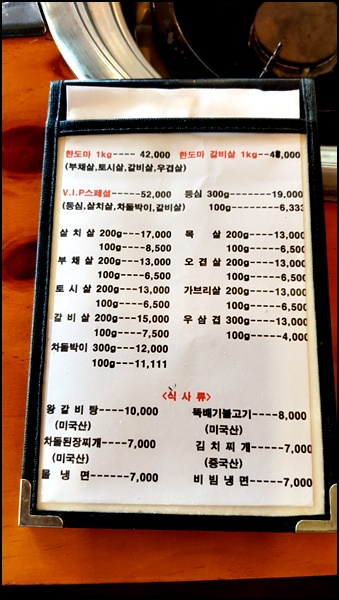 한도마 1kg---- 42,000 한도마 갈비살 1kg--48,000
(부채살,토시살,갈비살,우겹살)
V.I.P스페셜-----52,000 등심 300g-------19,000
(등심,살치살,차돌박이,갈비살) 100g-------6,333
살 치 살 200g---17,000 목 살 200g----13,000
100g-----8,500 100g------6,500
부 채 살 200g---13,000 오 겹 살 200g----13,000
100g-----6,500 100g------6,500
토 시 살 200g---13,000 가브리살 200g----13,000
100g-----6,500 100g------6,500
갈 비 살 200g---15,000 우 삼 겹 300g----13,000
100g-----7,500 100g------4,000
차돌박이 300g---12,000
100g---11,111
<식 사 류>
왕 갈 비 탕-----10,000 뚝배기불고기-----8,000
(미국산) (미국산)
차돌된장찌개----7,000 김 치 찌 개-----7,000
(미국산) (중국산)
물 냉 면------7,000 비 빔 냉 면-----7,000